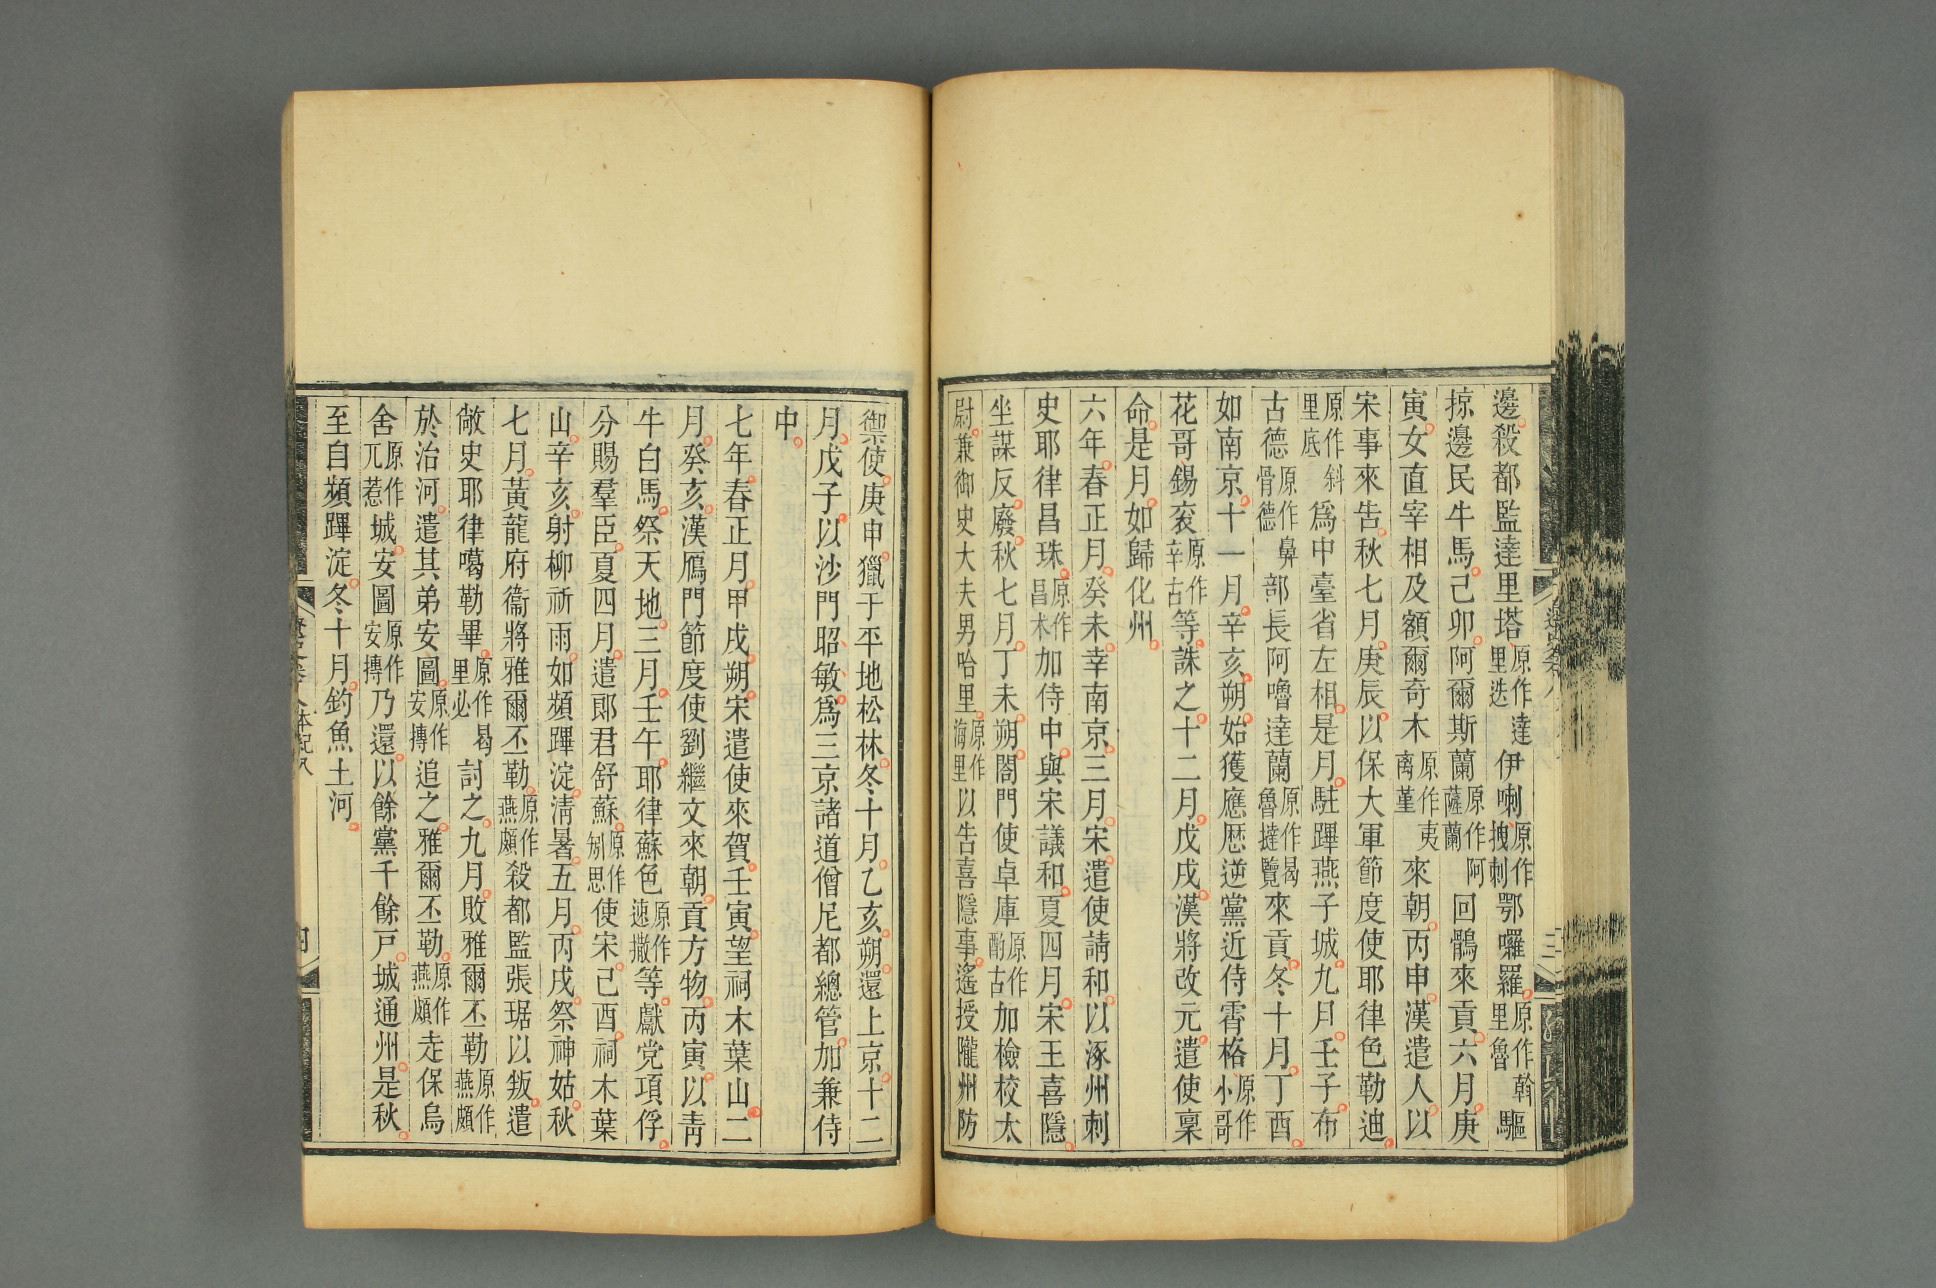 邊殺都監達里塔原作達里迭伊喇原作拽刺鄂囉羅原作斡里魯驅
掠邊民牛馬己卯阿爾斯蘭原作阿薩蘭回鶻來貢六月庚
寅女直宰相及額爾奇木原作夷离堇來朝丙申漢遣人以
宋事來告秋七月庚辰以保大軍節度使耶律色勒迪
原作斜里底爲中臺省左相是月駐蹕燕子城九月壬子布
古德原作鼻骨德部長阿嚕達蘭原作曷魯撻覽來貢冬十月丁酉
如南京十一月辛亥朔始獲應歷逆黨近侍霄格原作小哥
花哥錫衮原作辛古等誅之十二月戊戌漢將改元遣使稟
命是月如歸化州
六年春正月癸未幸南京三月宋遣使請和以涿州刺
史耶律昌珠原作昌朮加侍中與宋議和夏四月宋王喜隱
坐謀反廢秋七月丁未朔閤門使卓庫原作酌古加檢校太
尉兼御史大夫男哈里原作海里以告喜隱事遙授隴州防
禦使庚申獵于平地松林冬十月乙亥朔還上京十二
月戊子以沙門昭敏爲三京諸道僧尼都總管加兼侍
中
七年春正月甲戌朔宋遣使來賀壬寅望祠木葉山二
月癸亥漢鴈門節度使劉繼文來朝貢方物丙寅以靑
牛白馬祭天地三月壬午耶律蘇色原作速撒等獻党項俘
分賜羣臣夏四月遣郎君舒蘇原作矧思使宋己酉祠木葉
山辛亥射柳祈雨如頻蹕淀淸暑五月丙戌祭神姑秋
七月黃龍府衞將雅爾丕勒原作燕頗殺都監張琚以叛遣
敞史耶律噶勒畢原作曷里必討之九月敗雅爾丕勒原作燕頗
於治河遣其弟安圖原作安摶追之雅爾丕勒原作燕頗走保烏
舍原作兀惹城安圖原作安摶乃還以餘黨千餘戸城通州是秋
至自頻蹕淀冬十月釣魚土河